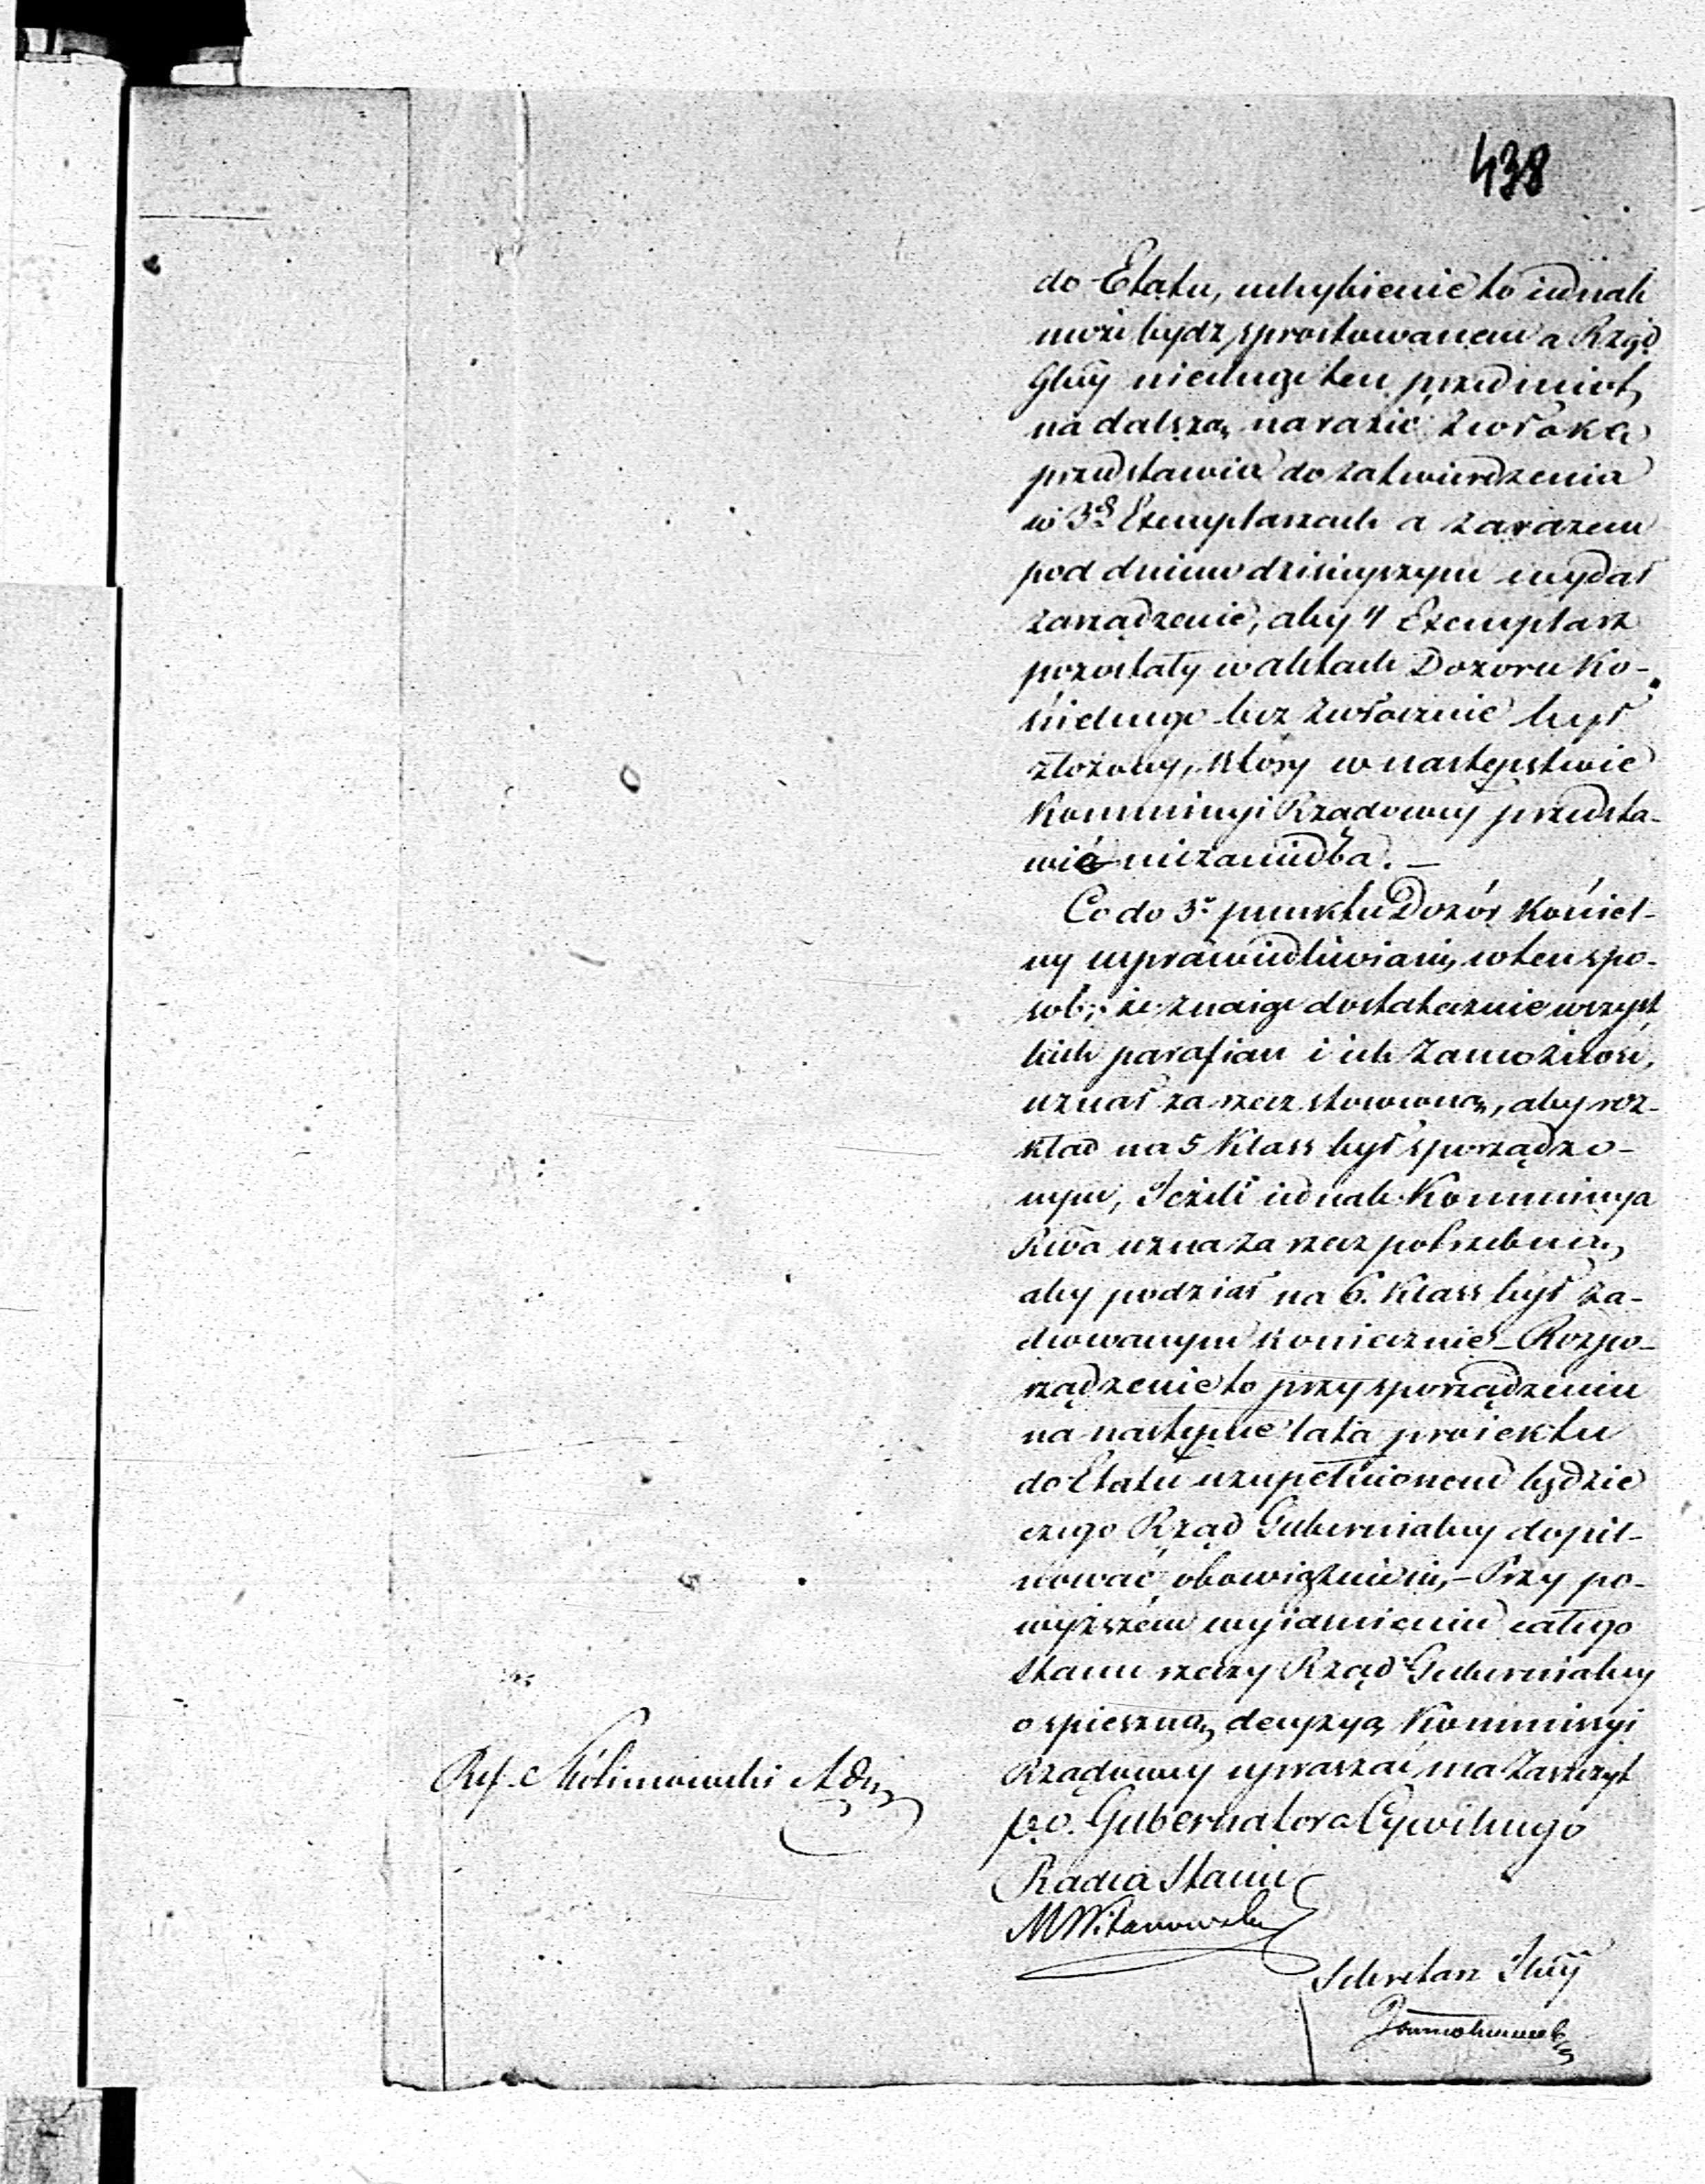 438
do Etatu, uchybienie to iednak
może bydz sprostowanem a Rząd
Glny niechcąc ten przedmiot
na dalszą narazić zwłokę
przedstawia do zatwierdzenia
w 3ch Exemplarzach a zarazem
pod dniem dzisieyszym wydał
zarządzenie, aby 4 Exemplarz
pozostały w aktach Dozoru Ko-
ścielnego bezzwłocznie był
złożony, który w następstwie
Kommissyi Rządowey przedsta-
wić niezaniedba. —
Co do 3o punktu Dozór Kościel-
ny usprawiedliwia się, w ten spo-
sob, że znaiąc dostatecznie wszyst
kich parafian i ich zamożność,
uznał za rzecz stosowną, aby roz-
kład na 5 Klass był sporządzo-
nym, Jeżeli iednak Kommissya
Rwa uzna za rzecz potrzebną,
aby podział na 6. Klass był za-
chowanym koniecznie – Rozpo-
rządzenie to przy sporządzeniu
na następne lata proiektu
do Etatu uzupełnionem będzie
czego Rząd Gubernialny dopil-
nować obowiąże się, – Przy po-
wyższem wyiaśnieniu całego
stanu rzeczy Rząd Gubernialny
o spieszną decyzyą Kommissyi
Rządowey upraszać ma zaszczyt
p.o. Gubernatora Cywilnego
Radca Stanu
M Witanowski
Ref.
Sekretarz Jlny